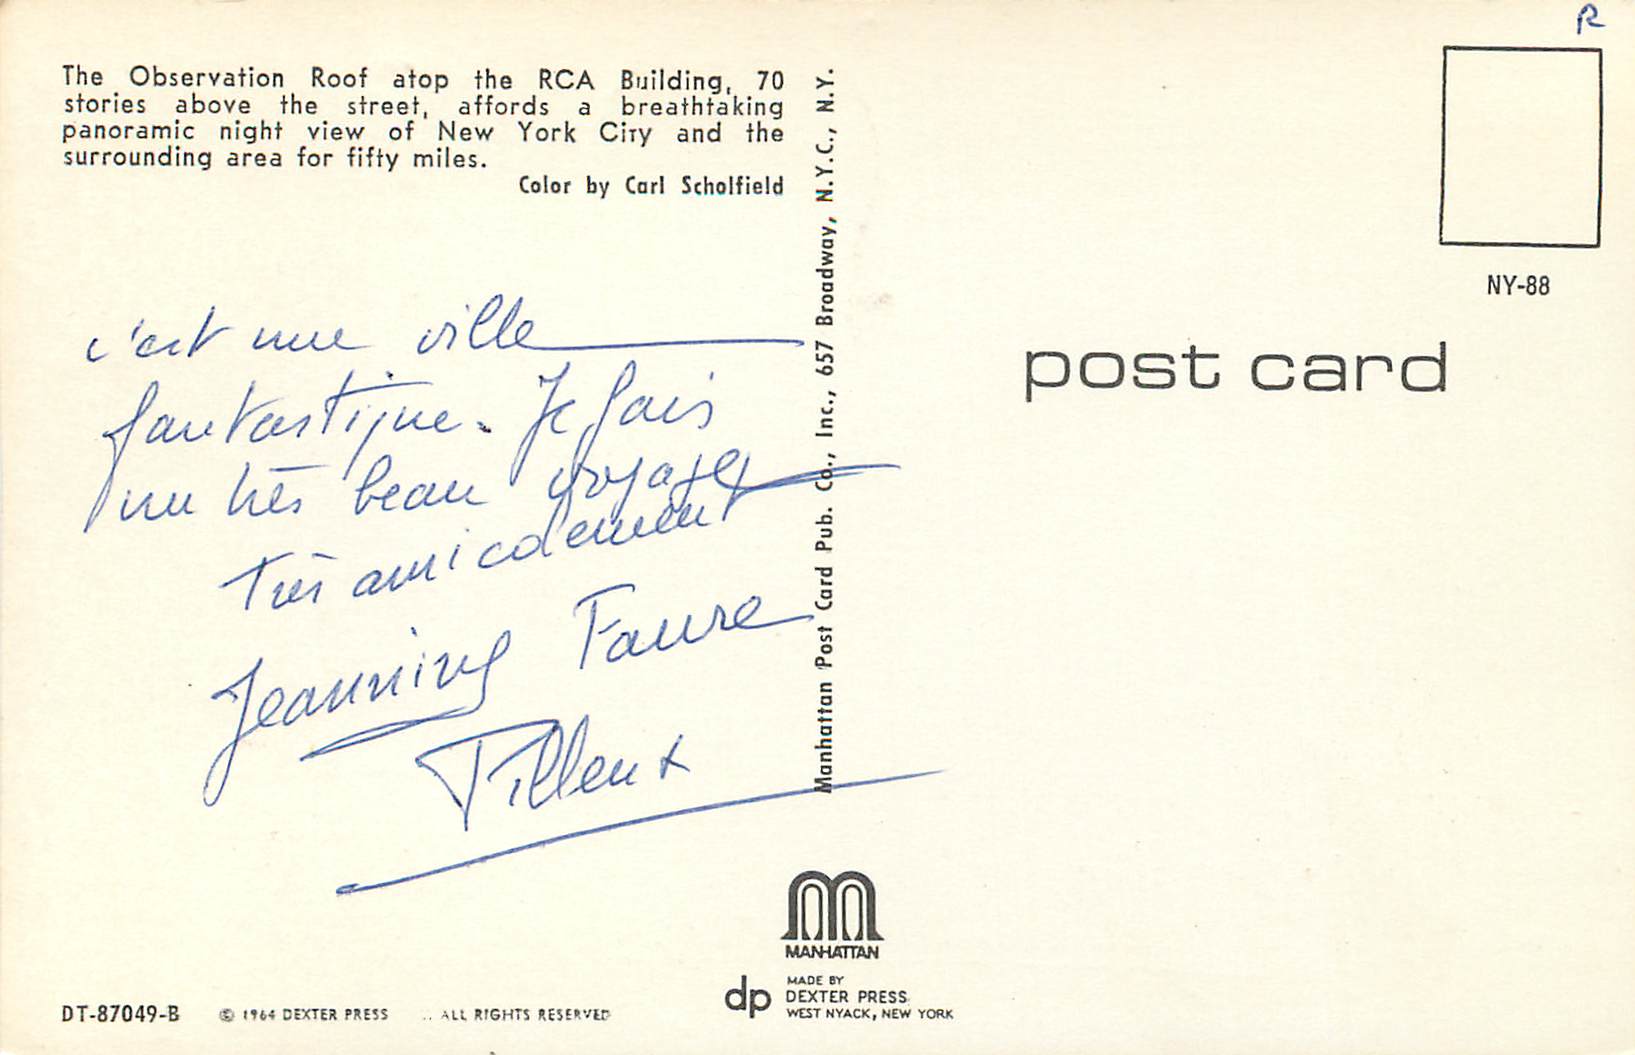 R
The Observation Roof atop the RCA Building, 70
stories above the street, affords a breathtaking
panoramic night view of New York City and the
surrounding area for fifty miles.
Color by Carl Scholfield
c'est une ville
fantastique. Je fais
un très beau voyage
Très amicalement
Jeannine Faure
Tilleux
Manhattan Post Card Pub. Co., Inc., 657 Broadway, N.Y.C., N.Y.
NY-88
post card
MANHATTAN
dp
MADE BY
DEXTER PRESS
WEST NYACK, NEW YORK
DT-87049-B © 1964 DEXTER PRESS ALL RIGHTS RESERVED